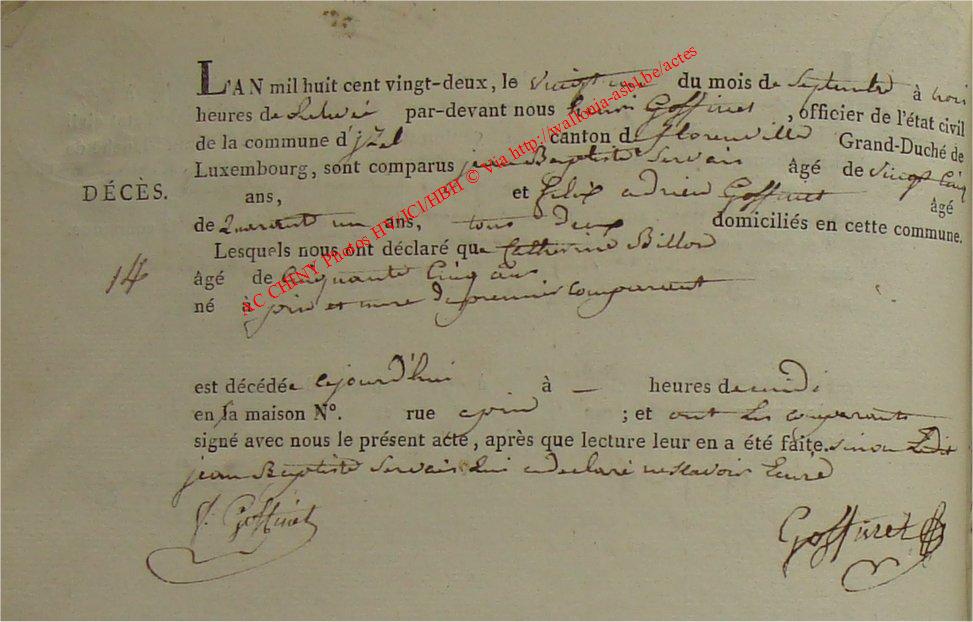 L'AN mil huit cent vingt-deux, le vingt du mois de Septembre à trois
heures de Relevé par-devant nous Goffinet, officier de l'état civil
de la commune d'jzel canton de florenville Grand-Duché de
Luxembourg, sont comparus jean Baptiste Servais âgé de vingt cinq
DÉCÈS. ans, et felix adrien Goffinet âgé
de quarante un ans, tous deux domiciliés en cette commune.
Lesquels nous ont déclaré que Catherine Billon
14 âgé de Cinquante Cinq ans
né à jzin et mere du premier comparant
est décédée cejourd'hui à — heures de midi
en sa maison N°. rue ; et ont les comparants
signé avec nous le présent acte, après que lecture leur en a été faite. sinon Ledit
jean Baptiste Servais qui a declaré ne scavoir Ecrire
f. Goffinet Goffinet
AC CHINY Photos HV/JCl/HBH © via http://wallonia-asbl.be/actes